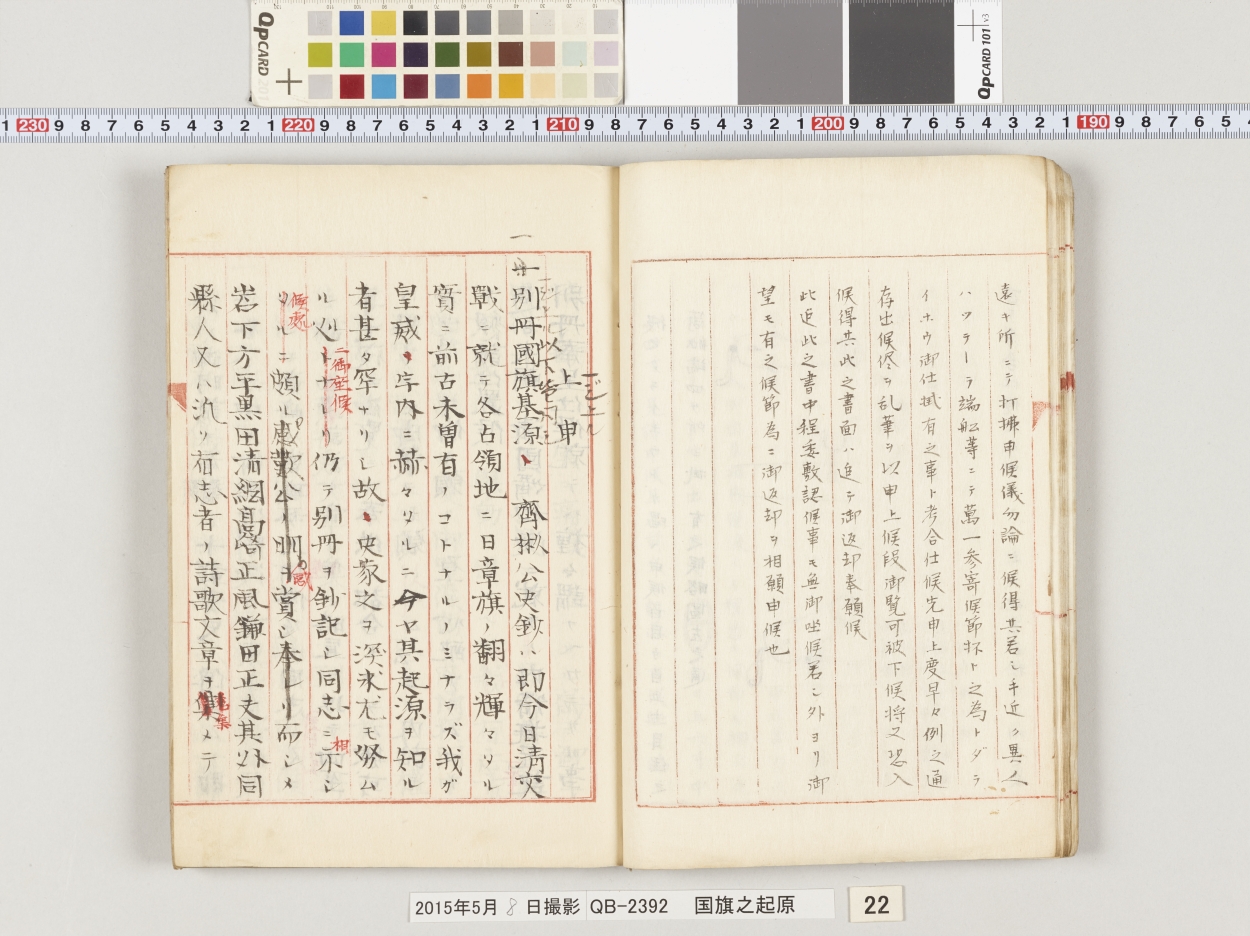 遠キ所ニテ打拂申候儀勿論ニ候得共若シ手近ク異人
ハツテーラ端船等ニテ萬一参寄候節杯ト之為トダラ
イホウ御仕掛有之事ト考合仕候先申上度早々例之通
存出候侭ヲ乱筆ヲ以申上候段御覧可被下候将又恐入
候得共此之書面ハ追テ御返却奉願候
此迄此之書中程委敷認候事モ無御坐候若シ外ヨリ御
望モ有之候節為ニ御返却ヲ相願申候也
上申
一別冊國旗基源 齊彬公史鈔ハ即今日清交
戰ニ就テ各占領地ニ日章旗ノ翻々輝々タル
實ニ前古未曽有ノコトナルノミナラズ我ガ
皇威ノ宇内ニ赫々タルニ今ヤ其起源ヲ知ル
者甚タ罕ナリシ故 史家之ヲ深ク求尤モ努ム
ル 仍テ別冊ヲ鈔記シ同志ニ示シ
ニ御座候
相
候處
タルニ頗ル 公ノ明ヲ賞シ奉レリ而シメ
岩下方平黒田清綱髙崎正風鎌田正丈其外同
縣人又ハ汎ク有志者ノ詩歌文章ヲ集メテ
QPCARD 101 v3
QPCARD 201
2015年5月8日撮影 QB-2392 国旗之起原
22